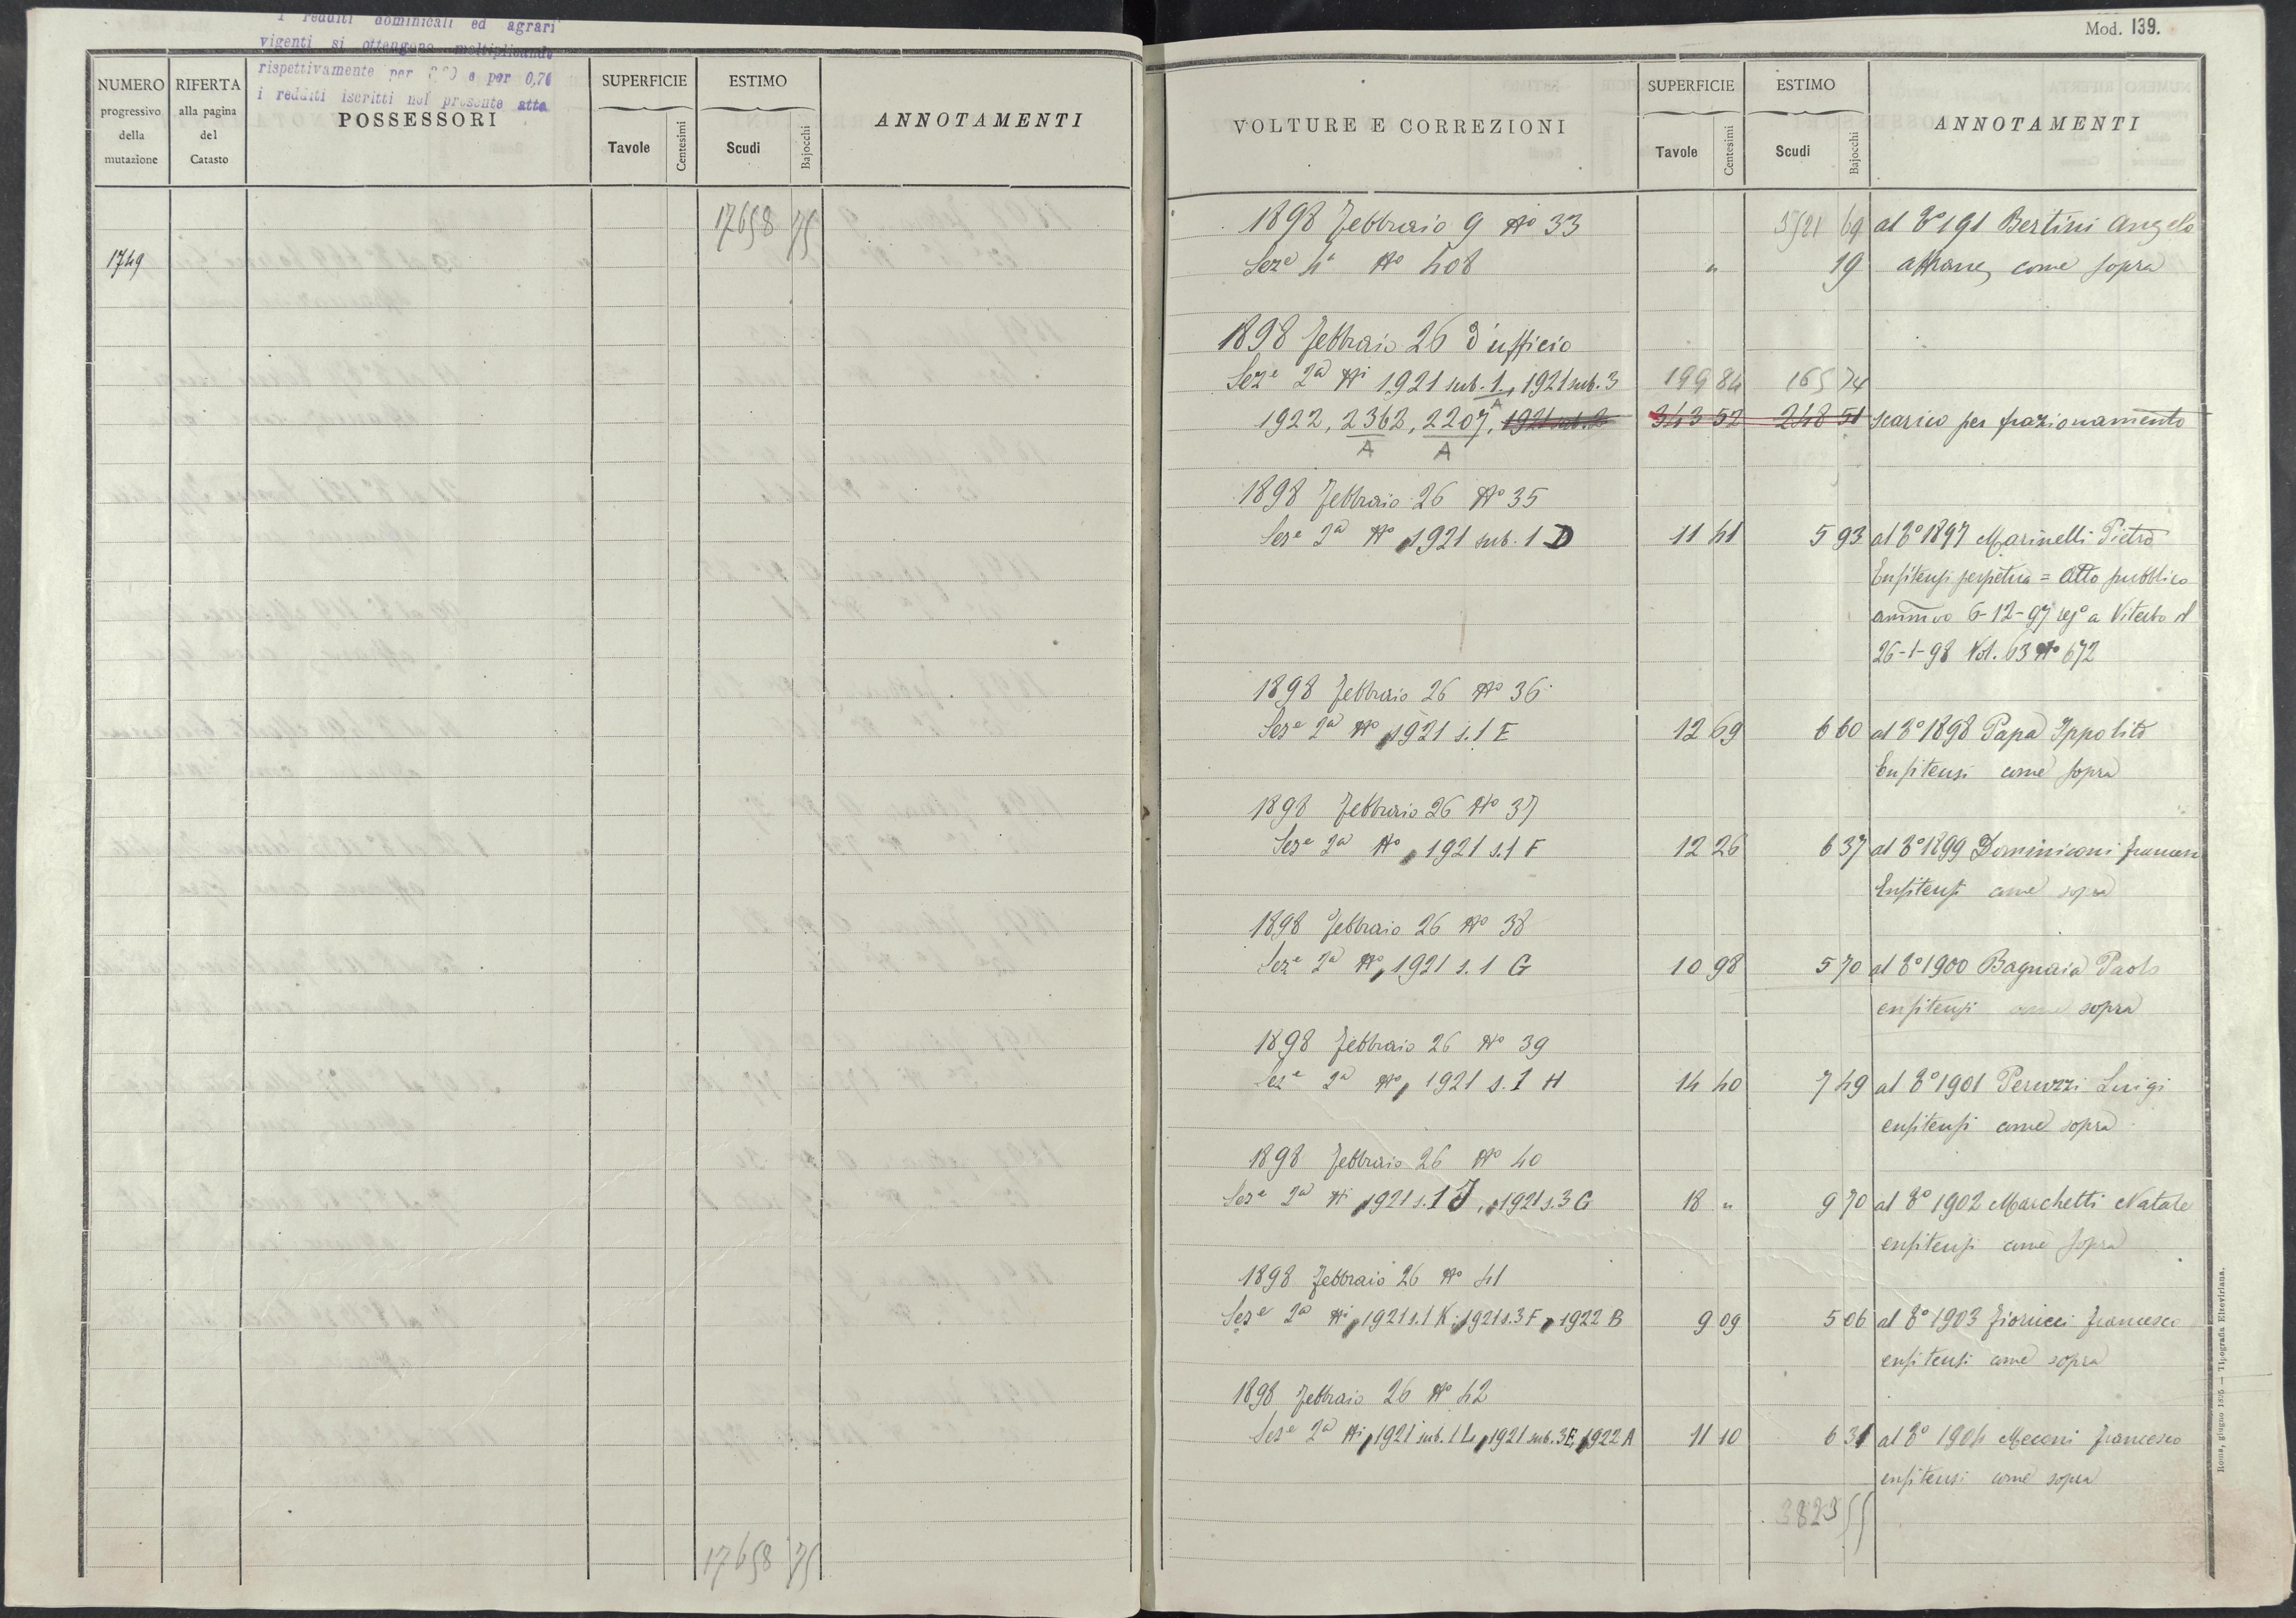 i redditi dominicali ed agrari
vigenti si ottengono moltiplicando
rispettivamente per e per 0,70
i redditi iscritti nel presente atto
NUMERO progressivo della mutazione
RIFERTA alla pagina del Catasto
POSSESSORI
SUPERFICIE
Tavole Centesimi
ESTIMO
Scudi Bajocchi
ANNOTAMENTI
17658 75
1749
17658 75
Mod. 139.
VOLTURE E CORREZIONI
SUPERFICIE
Tavole Centesimi
ESTIMO
Scudi Bajocchi
ANNOTAMENTI
1898 Febbraio 9 No 33 3521 69 al 3° 191 Bertini Angelo
Seze 4a No 408 " 19 affranc, come sopra
1898 febbraio 26 d'ufficio
Seze 2a Ni 1921 sub. 1, 1921 sub. 3 199 84 165 74
A A
1922, 2363, 2207, 1921 sub. 2 343 52 248 51 scarico per frazionamento
A A
1898 Febbraio 26 No 35
Seze 2a No 1921 sub. 1 D 11 41 5 93 al 3° 1897 Marinelli Pietro
Enfiteusi perpetua = Atto pubblico
ammvo 6-12-97 rego a Viterbo il
26-1-98 Vol. 63 No 672
1898 Febbraio 26 No 36
Seze 2a No 1921 s. 1 E 12 69 6 60 al 3° 1898 Papa Ippolito
Enfiteusi come sopra
1898 Febbraio 26 No 37
Seze 2a No 1921 s. 1 F 12 26 6 37 al 3° 1899 Dominiconi francesco
Enfiteusi come sopra
1898 Febbraio 26 No 38
Seze 2a No 1921 s. 1 G 10 98 5 70 al 3° 1900 Bagnaia Paolo
enfiteusi come sopra
1898 Febbraio 26 No 39
Seze 2a No 1921 s. 1 H 14 40 7 49 al 3° 1901 Peruzzi Luigi
enfiteusi come sopra
1898 Febbraio 26 No 40
Seze 2a Ni 1921 s. 1 J, 1921 s. 3 G 18 " 9 70 al 3° 1902 Marchetti Natale
enfiteusi come sopra
1898 Febbraio 26 No 41
Seze 2a Ni 1921 s. 1 K, 1921 s. 3 F, 1922 B 9 09 5 06 al 3° 1903 Fiorucci francesco
enfiteusi come sopra
1898 Febbraio 26 No 42
Seze 2a Ni 1921 sub. 1 L, 1921 sub. 3 E, 1922 A 11 10 6 31 al 3° 1904 Meconi francesco
enfiteusi come sopra
3823 55
Roma, giugno 1895 — Tipografia Elzeviriana.